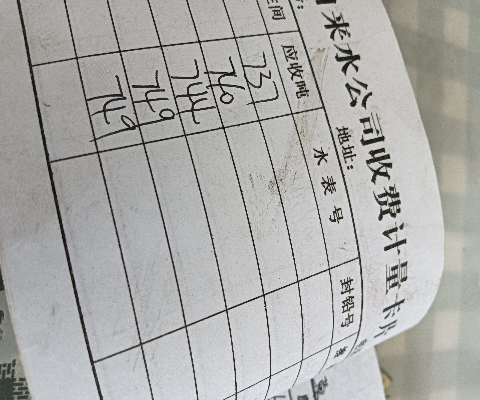 来水公司收费计量卡
地址：
应收吨
水表号
封铅号
737
740
744
749
749